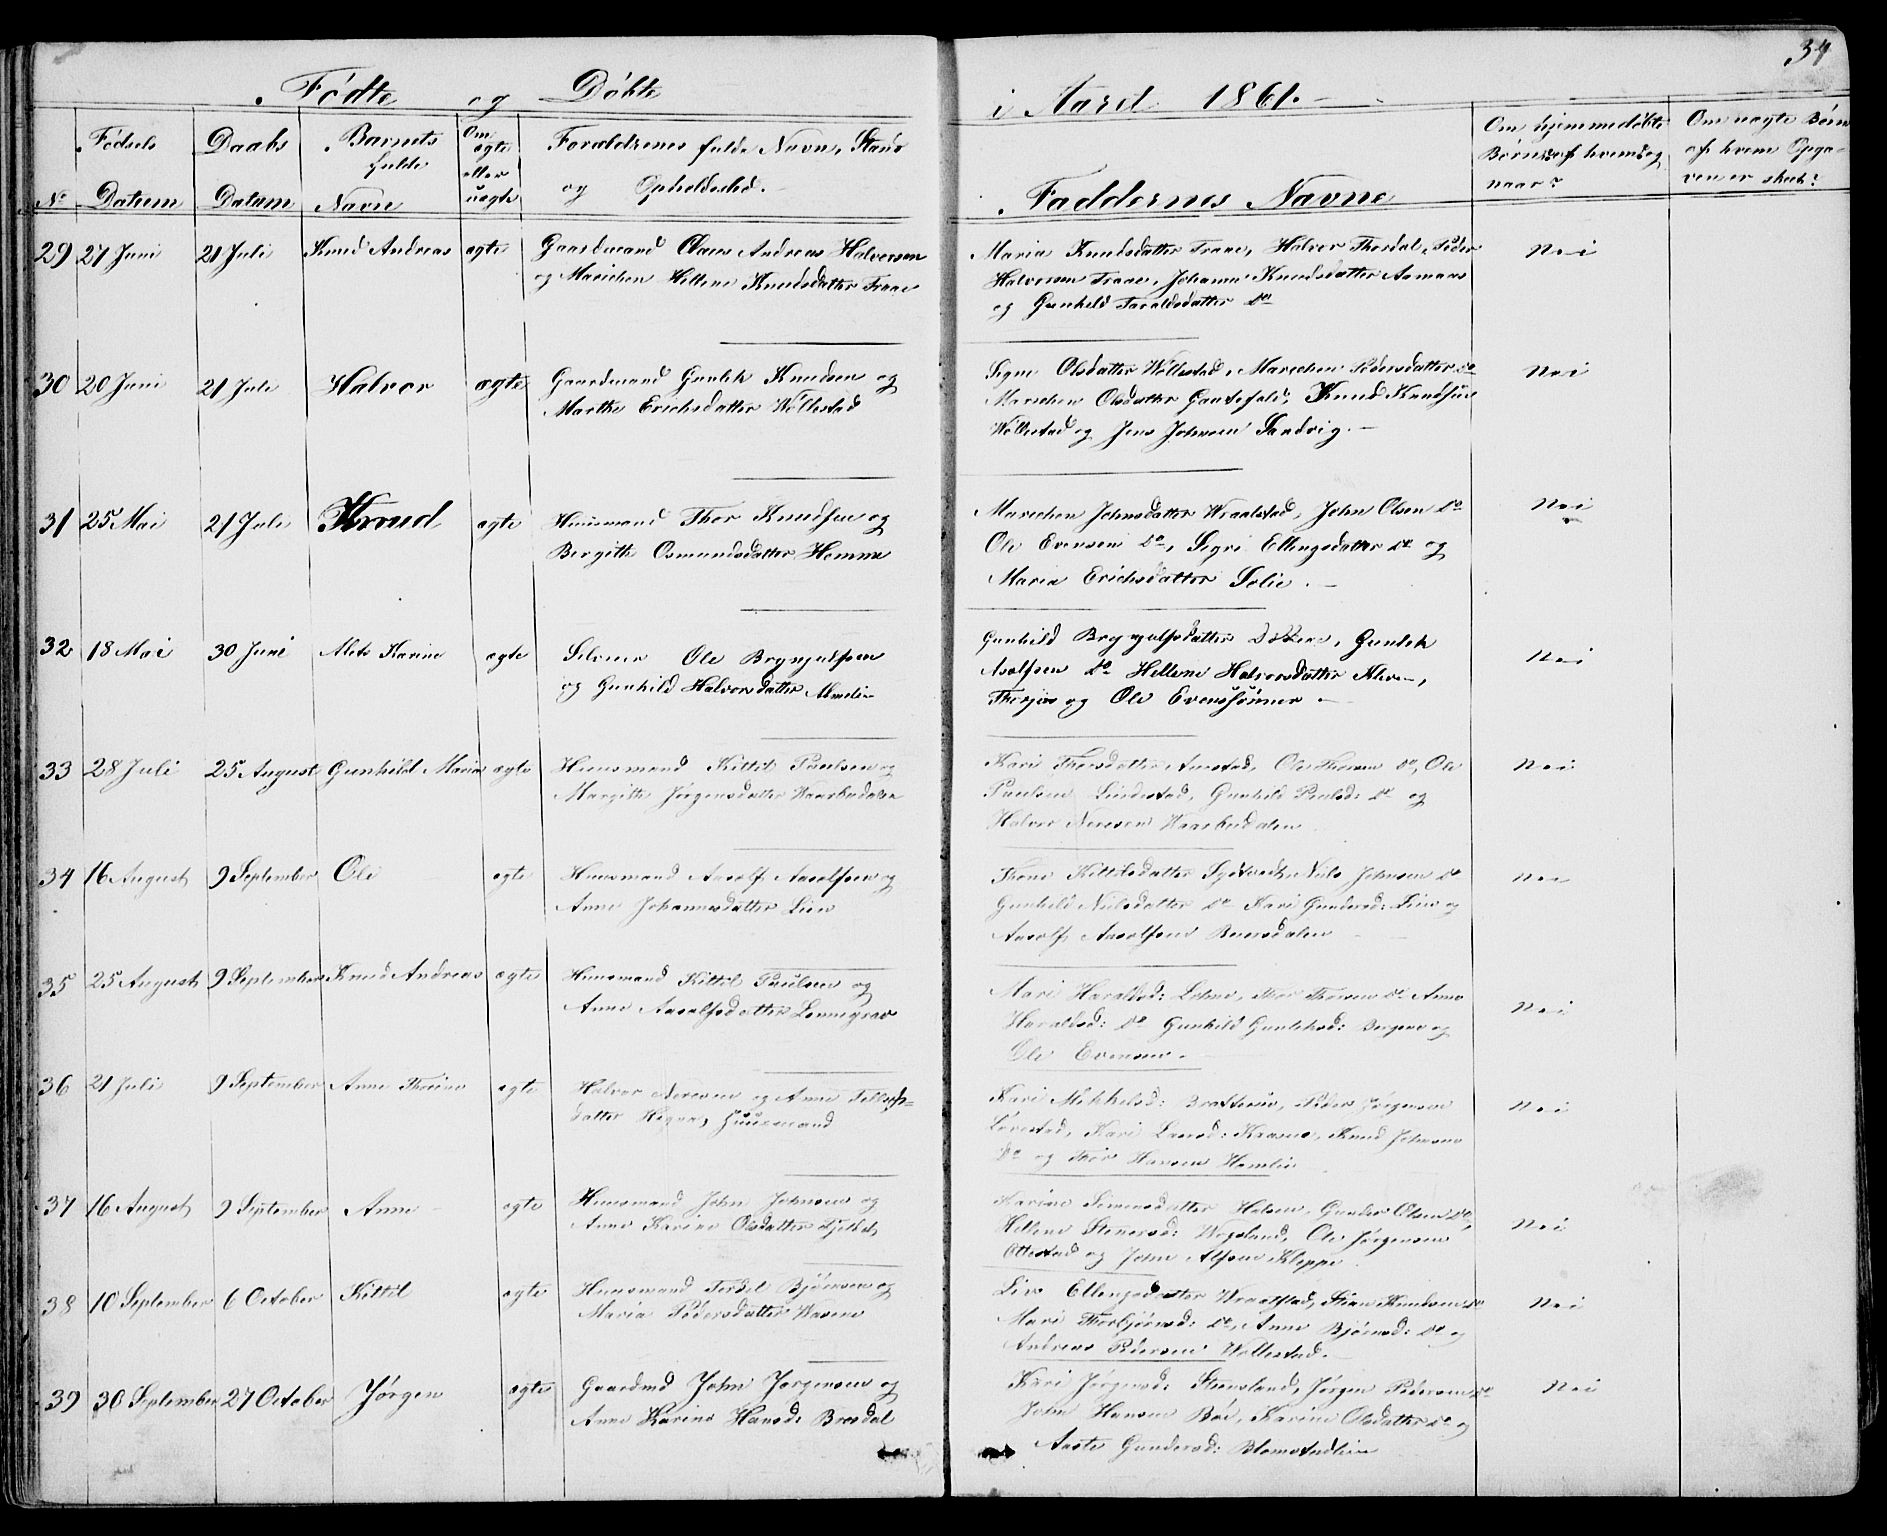 34
Fødte og Døbte i Aaret 1861.
No
Fødsels Datum
Daabs Datum
Barnets fulde Navn
Om ægte eller uægte
Forældrenes fulde Navn, Stand og Opholdssted.
Faddernes Navne
Om hjemmedøbte Børn, af hvem og naar?
Om uægte Børn af hvem Opgaven er skeet?
29 27 Juni 21 Juli Knud Andreas ægte Gaardmand Claus Andreas Halvorsen
og Marichen Hellene Knudsdatter Traae
Maria Knudsdatter Traae, Halvor Thordal, Peder
Halvorsen Traae, Johanne Knudsdatter Aamaas
og Gunhild Taraldsdatter Do
Nei
30 20 Juni 21 Juli Halvor ægte Gaardmand Gunlek Knudsen og
Marthe Erichsdatter Wollestad
Signe Olsdatter Wollestad, Marichen Pedersdatter Do
Marichen Olsdatter Gautefald, Knud Knudsen
Wollestad og Jens Johnsen Sandvig.
Nei
31 25 Mai 21 Juli Knud ægte Huusmand Thor Knudsen og
Bergithe Osmundsdatter Homme
Marichen Johnsdatter Wraalstad, John Olsen Do
Ole Evensen Do, Sigri Ellingsdatter Do og
Maria Erichsdatter Solie.
Nei
32 18 Mai 30 Juni Alete Karine ægte Selveier Ole Brynjulfsen
og Gunhild Halvorsdatter
Gunhild Brynjulfsdatter, Gunlek
Aaolfsen Do Hellene Halvorsdatter Kleve,
Thorjus og Ole Evenssønner
Nei
33 28 Juli 25 August Gunhild Maria ægte Huusmand Kittel Paulsen og
Margithe Jørgensdatter Waasbudalen
Kari Thorsdatter, Ole Thorsen Do, Ole
Paulsen Lindestad, Gunhild Paulsd: Do og
Halvor Neresen Waasbudalen
Nei
34 16 August 9 September Ole ægte Huusmand Aaolf Aaolfsen og
Anne Johannesdatter Lien
Thone Kittelsdatter, Niels Johnsen Do
Gunhild Nielsdatter Do Kari Gundersd: Lien og
Aaolf Aaolfsen
Nei
35 25 August 9 September Knud Andreas ægte Huusmand Kittel Paulsen og
Anne Aaolfsdatter Lonnegrav
Mari Haraldsd:, Thor Thorsen Do Anne
Haraldsd: Do Gunhild Gunleksd: og
Ole Evensen.
Nei
36 21 Juli 9 September Anne Thorine ægte Halvor Neresen og Anne Tellefs-
datter, Huusmand
Kari Mikkelsd:, Peder Jørgensen
Lovestad, Kari Larsd:, Knud Johnsen
Do og Thor Hansen
Nei
37 16 August 9 September Anne ægte Huusmand John Johnsen og
Anne Karine Olsdatter
Karine Simensdatter, Gunder Olsen Do,
Hellene Stenersd:, Ole Jørgensen
Ottestad og John Alfsen Kleppe
Nei
38 10 September 6 October Kittel ægte Huusmand Terkel Bjørnsen og
Maria Pedersdatter
Liv Ellingsdatter Wraalstad, Stian Knudsen Do
Mari Thorbjørnsd: Do, Anne Bjørnsd: Do og
Andreas Pedersen Wollestad.
Nei
39 30 September 27 October Jørgen ægte Gaardmd John Jørgensen og
Anne Karine Hansd: Brosdal
Kari Jørgensd: Steensland, Jørgen Pedersen Do
John Hansen Bøe, Karine Olsdatter Do og
Aaste Gundersd:
Nei